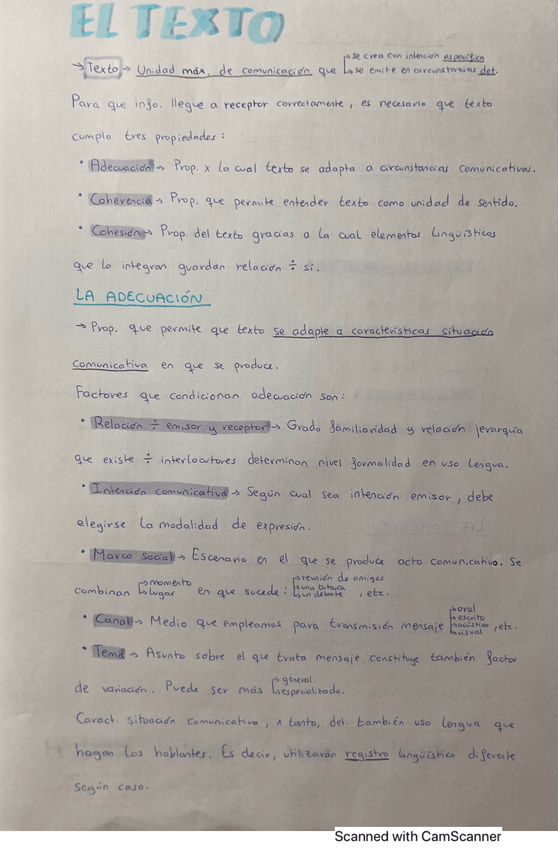 EL TEXTO
→ Texto → Unidad máx. de comunicación que se crea con intención específica
se emite en circunstancias det.
Para que info. llegue a receptor correctamente, es necesario que texto
cumpla tres propiedades:
• Adecuación → Prop. x la cual texto se adapta a circunstancias comunicativas.
• Coherencia → Prop. que permite entender texto como unidad de sentido.
• Cohesión → Prop. del texto gracias a la cual elementos lingüísticos
que lo integran guardan relación ÷ sí.
LA ADECUACIÓN
→ Prop. que permite que texto se adapte a características situación
comunicativa en que se produce.
Factores que condicionan adecuación son:
• Relación ÷ emisor y receptor → Grado familiaridad y relación jerarquía
que existe ÷ interlocutores determinan nivel formalidad en uso lengua.
• Intención comunicativa → Según cual sea intención emisor, debe
elegirse la modalidad de expresión.
• Marco social → Escenario en el que se produce acto comunicativo. Se
combinan momento lugar en que sucede: reunión de amigos una tutoría un debate, etc.
• Canal → Medio que empleamos para transmisión mensaje oral escrito acústico visual, etc.
• Tema → Asunto sobre el que trata mensaje constituye también factor
de variación. Puede ser más general especializado.
Caract. situación comunicativa, x tanto, det. también uso lengua que
hagan los hablantes. Es decir, utilizarán registro lingüístico diferente
según caso.
Scanned with CamScanner